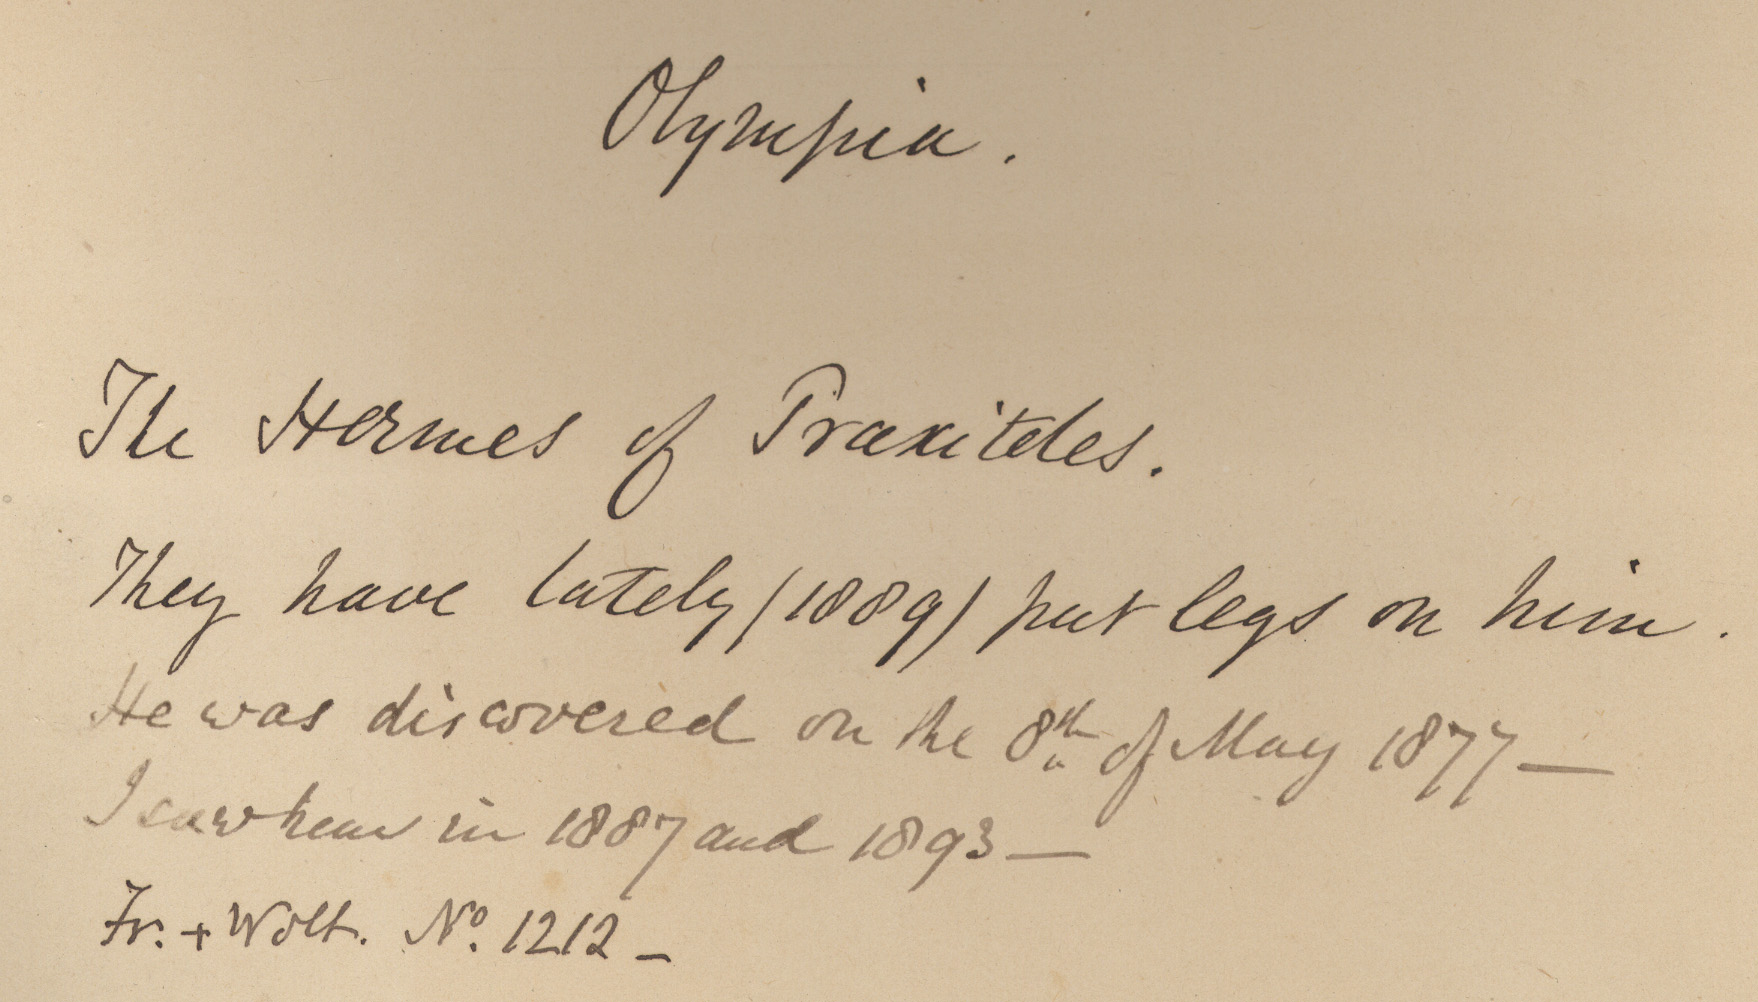 Olympia.
The Hermes of Praxiteles.
They have lately (1889) put legs on him.
He was discovered on the 8th of May 1877—
I saw him in 1887 and 1893—
Fr. + Wolt. No. 1212—